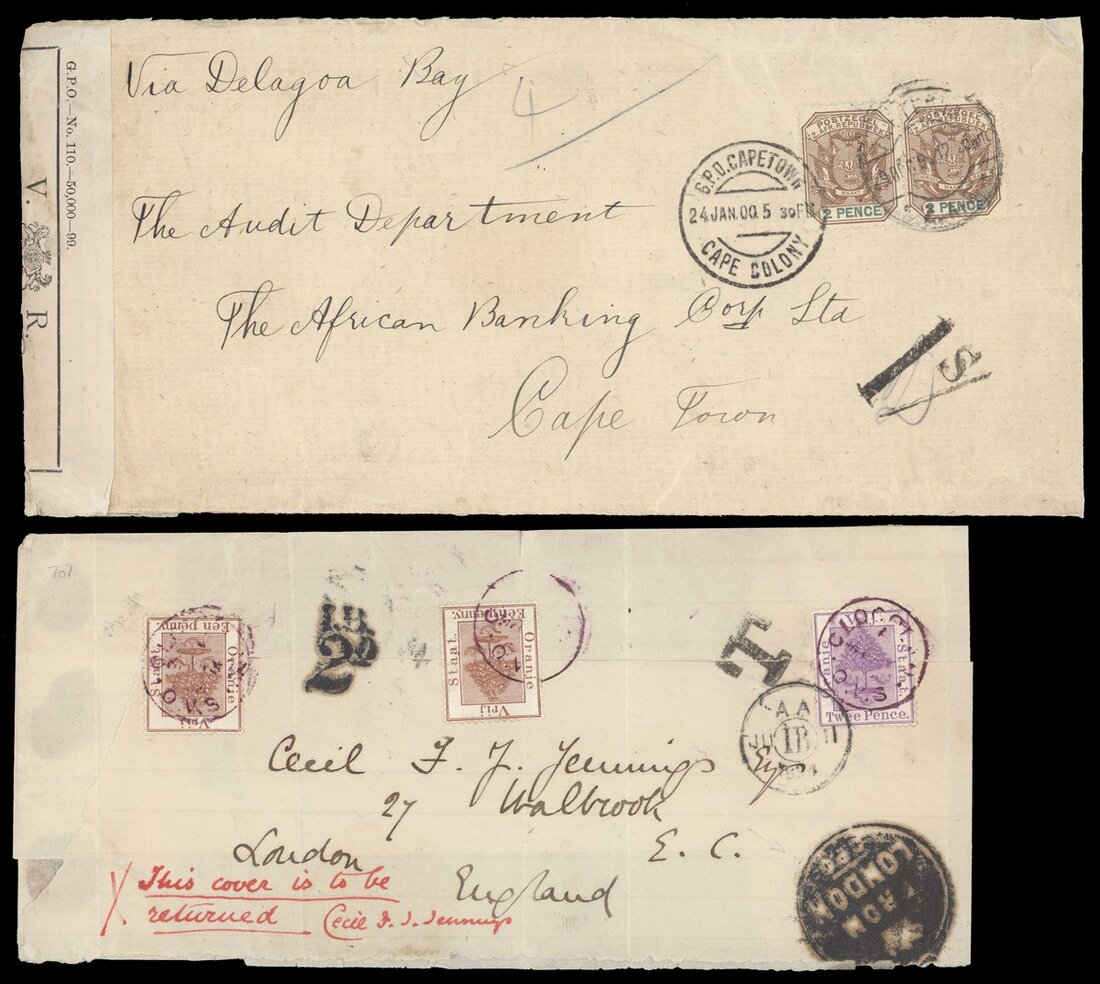 G.P.O.—No. 110.—50,000—99.
V. R.
Via Delagoa Bay
4
POSTZEGEL
Z. AFR. REPUBLIEK
2 PENCE
POSTZEGEL
2 PENCE
G.P.O. CAPETOWN
24 JAN. 00. 5 30 PM
CAPE COLONY
The Audit Department
The African Banking Corp Ltd
Cape Town
707
Een penny.
Oranje
Vrij
Staat.
I.B.
2D
Een penny.
Oranje
Vrij
Staat.
T
CLOCOLAN
O.V.S.
Staat.
Twee Pence.
AA
IB
Cecil F. J. Jennings Esq
27 Walbrook
London E. C.
England
This cover is to be
returned Cecil F. J. Jennings
LONDON